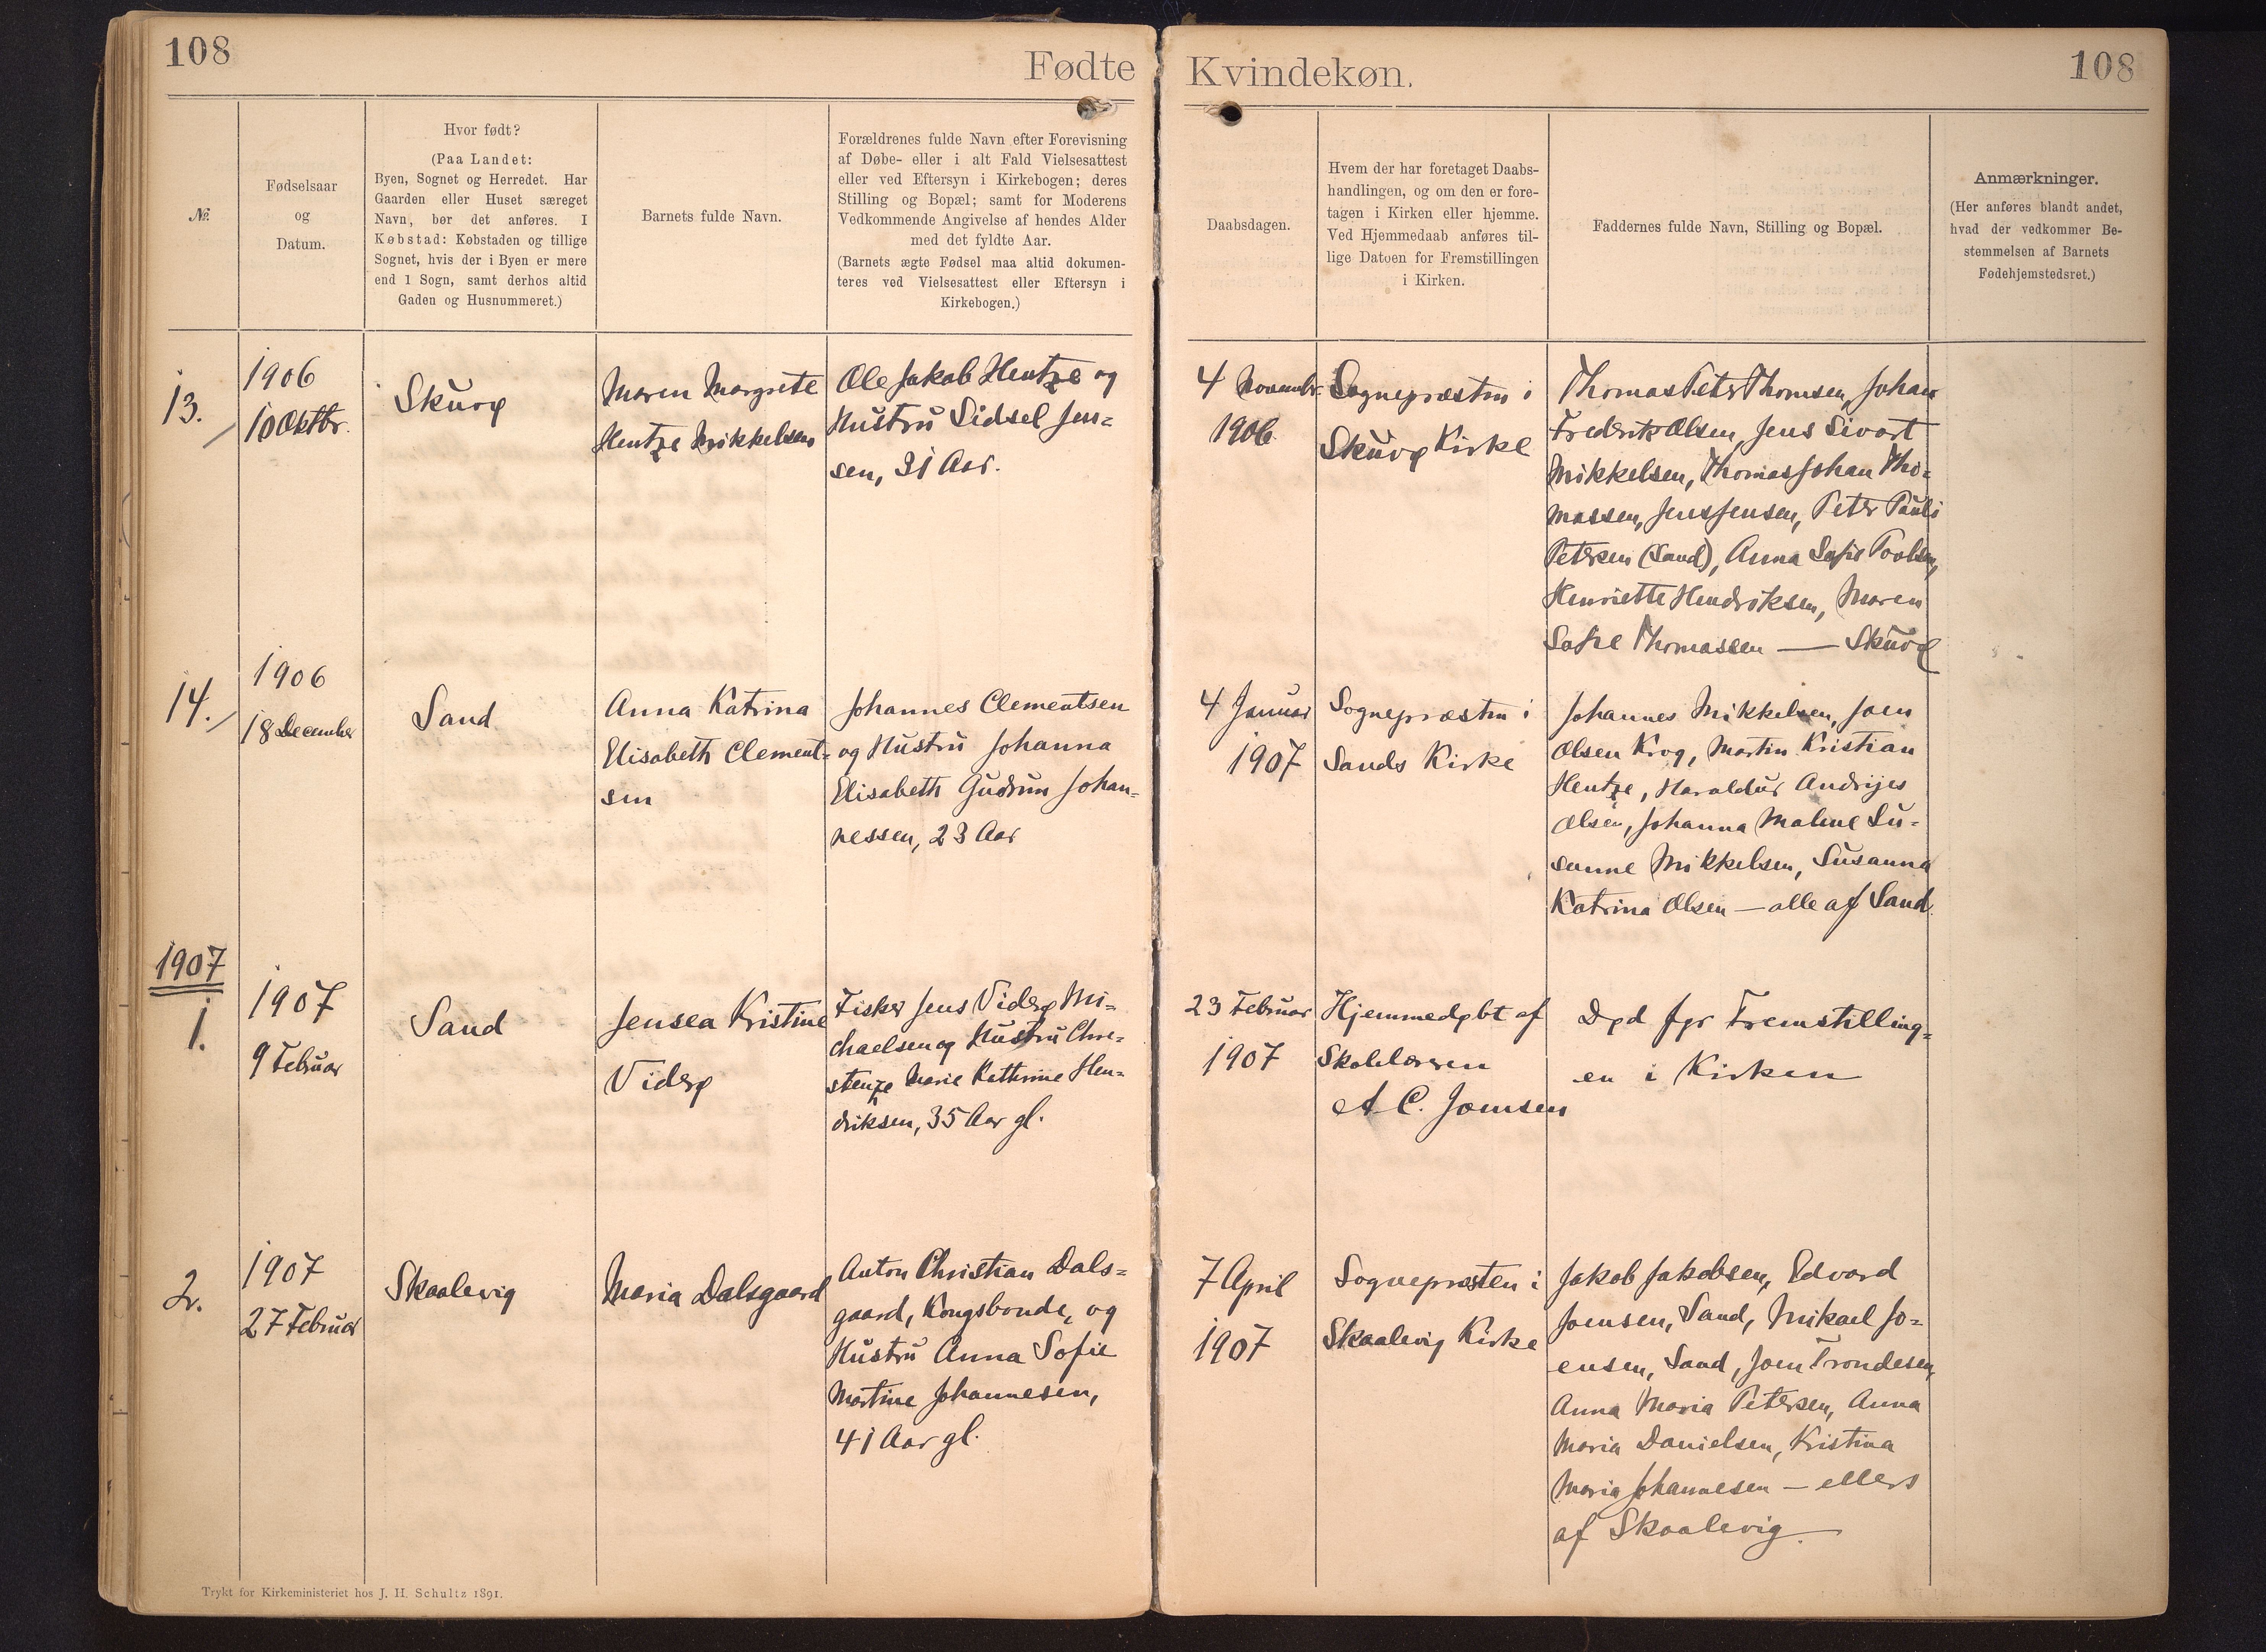 108
Fødte
Kvindekøn.
108
№
Fødselsaar
og
Datum.
Hvor født?
(Paa Landet:
Byen, Sognet og Herredet. Har
Gaarden eller Huset særeget
Navn, bør det anføres. I
Købstad: Købstaden og tillige
Sognet, hvis der i Byen er mere
end 1 Sogn, samt derhos altid
Gaden og Husnummeret.)
Barnets fulde Navn.
Forældrenes fulde Navn efter Forevisning
af Døbe- eller i alt Fald Vielsesattest
eller ved Eftersyn i Kirkebogen; deres
Stilling og Bopæl; samt for Moderens
Vedkommende Angivelse af hendes Alder
med det fyldte Aar.
(Barnets ægte Fødsel maa altid dokumen-
teres ved Vielsesattest eller Eftersyn i
Kirkebogen.)
Daabsdagen.
Hvem der har foretaget Daabs-
handlingen, og om den er fore-
tagen i Kirken eller hjemme.
Ved Hjemmedaab anføres til-
lige Datoen for Fremstillingen
i Kirken.
Faddernes fulde Navn, Stilling og Bopæl.
Anmærkninger.
(Her anføres blandt andet,
hvad der vedkommer Be-
stemmelsen af Barnets
Fødehjemstedsret.)
13.
1906
10 Oktbr.
Skuvø
Maren Margrete
Hentze Mikkelsen
Ole Jakob Hentze og
Hustru Sidsel Jen-
sen, 31 Aar.
4 Novembr.
1906
Sognepræsten i
Skuvø Kirke
Thomas Peter Thomsen, Johan
Frederik Olsen, Jens Sivart
Mikkelsen, Thomas Johan Tho-
massen, Jens Jensen, Peter Pauli
Petersen (Sand), Anna Sofie Poulsen,
Henriette Hendriksen, Maren
Sofie Thomassen — Skuvø
14.
1906
18 December
Sand
Anna Katrina
Elisabeth Clement-
sen
Johannes Clementsen
og Hustru Johanna
Elisabeth Gudrun Johan-
nessen, 23 Aar
4 Januar
1907
Sognepræsten i
Sands Kirke
Johannes Mikkelsen, Joen
Olsen Krog, Martin Kristian
Hentze, Haraldur Andrijes
Olsen, Johanna Maline Su-
sanne Mikkelsen, Susanna
Katrina Olsen — alle af Sand.
1907
1.
1907
9 Februar
Sand
Jensea Kristine
Viderø
Fisker Jens Viderø Mi-
chaelsen og Hustru Chre-
stenze Marie Kathrine Hen-
driksen, 35 Aar gl.
23 Februar
1907
Hjemmedøbt af
Skolelæreren
A. C. Joensen
Død før Fremstilling-
en i Kirken
2.
1907
27 Februar
Skaalevig
Maria Dalsgaard
Anton Christian Dals-
gaard, Kongsbonde, og
Hustru Anna Sofie
Martine Johannesen,
41 Aar gl.
7 April
1907
Sognepræsten i
Skaalevig Kirke
Jakob Jakobsen, Edvard
Joensen, Sand, Mikael Jo-
ensen, Sand, Joen Trondesen,
Anna Maria Petersen, Anna
Maria Danielsen, Kristina
Maria Johannesen — ellers
af Skaalevig
Trykt for Kirkeministeriet hos J. H. Schultz 1891.